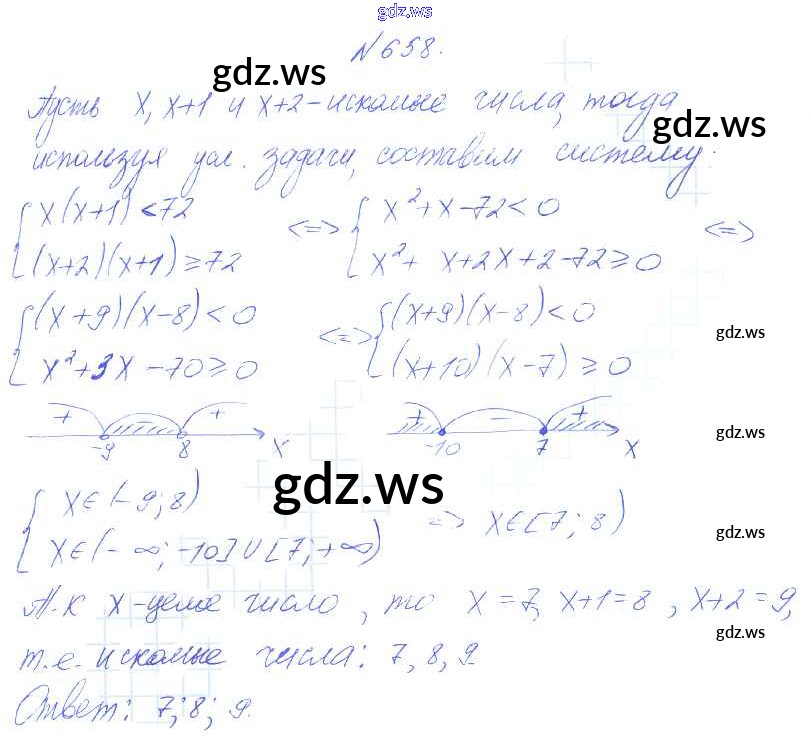 gdz.ws
№658.
gdz.ws
Пусть x, x+1 и x+2 - искомые числа, тогда
gdz.ws
используя усл. задачи, составим систему:
{ x(x+1)<72 <=> { x²+x-72<0 <=>
(x+2)(x+1)≥72 x²+x+2x+2-72≥0
{ (x+9)(x-8)<0 <=> { (x+9)(x-8)<0
x²+3x-70≥0 (x+10)(x-7)≥0
gdz.ws
+ - + + - +
-9 8 x -10 7 x
gdz.ws
gdz.ws
{ x∈(-9; 8) => x∈[7; 8)
x∈(-∞; -10]∪[7; +∞)
gdz.ws
Т.к x-целое число, то x=7, x+1=8, x+2=9,
gdz.ws
т.е. искомые числа: 7, 8, 9.
Ответ: 7; 8; 9.